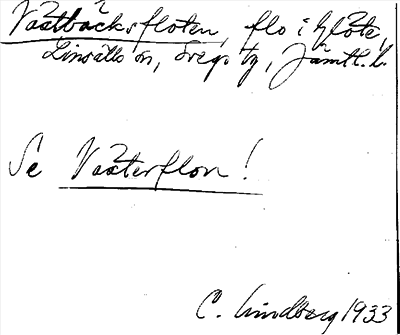 Västbäcksfloten, flo i Klöte,
Linsälls sn, Svegs tg, Jämtl. l.
Se Västerflon!
C. Lindberg 1933